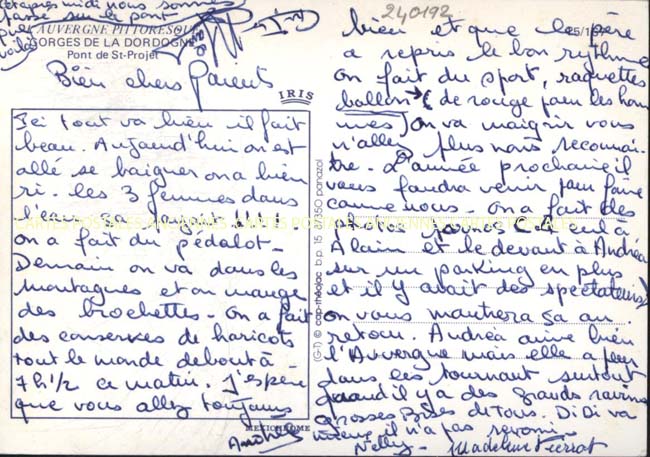 cet après midi nous sommes
passé sur le pont
que
voilà
L'AUVERGNE PITTORESQUE
GORGES DE LA DORDOGNE
Pont de St-Projet
IRIS
Bien chers Parents
Ici tout va bien il fait
beau. Aujourd'hui on est
allé se baigner on a bien
ri. les 3 femmes dans
l'eau ça
on a fait du pédalot -
Demain on va dans les
montagnes et on mange
des brochettes - On a fait
des conserves de haricots
tout le monde debout à
7h1/2 ce matin. J'espère
que vous allez toujours
MEXICHROME
(G-I) © cap-théojac b.p. 15 87350 panazol
240192
bien et que le père
a repris le bon rythme
on fait du sport, raquettes
ballon (de rouge pour les hom
mes) on va maigrir vous
n'allez plus nous reconnai-
tre. L'année prochaine il
vous faudra venir pour faire
comme nous - On a fait des
photos
Alain et le devant à Andréa
sur un parking en plus
et il y avait des spectateurs)
on vous montrera ça au
retour. Andréa aime bien
l'Auvergne mais elle a peur
dans les tournant surtout
quand il y a des grands ravins
Grosses Bises de Tous. Di Di va
mieux il n'a pas revomi
Nelly - Madeleine
CARTES POSTALES ANCIENNES